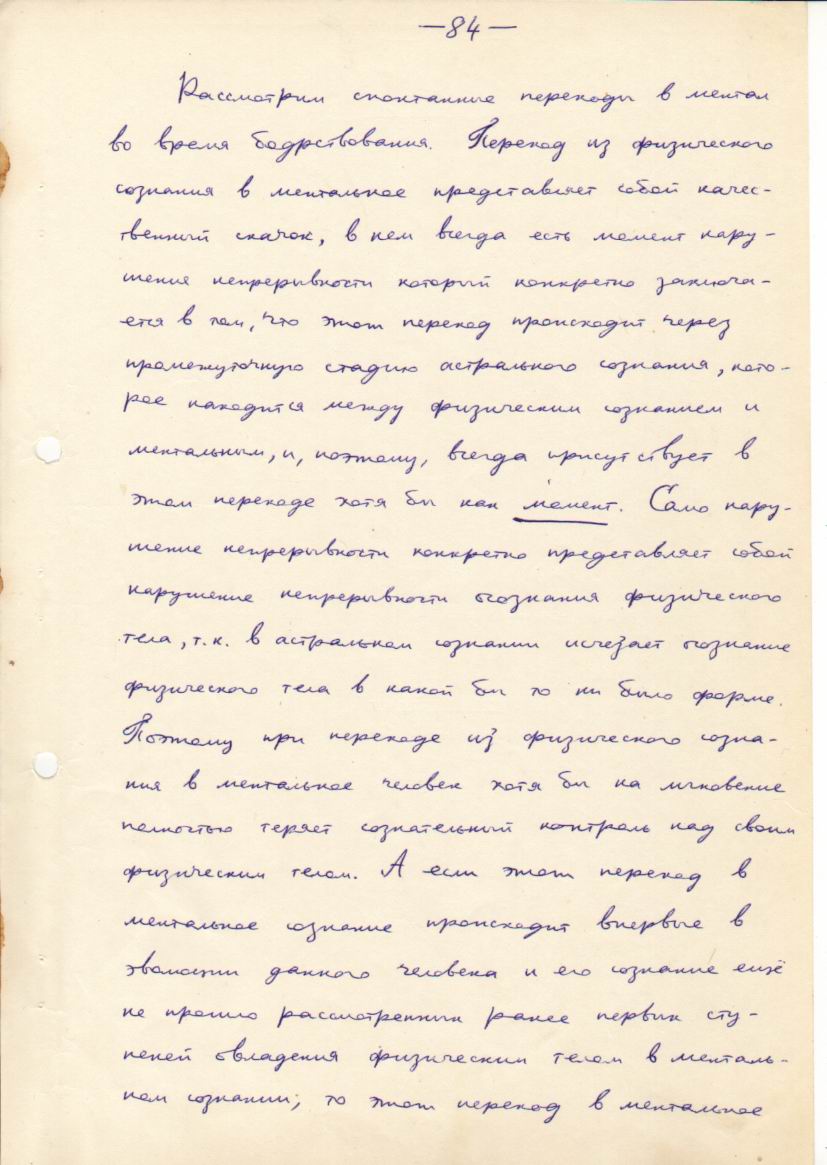 —84—
Рассмотрим спонтанные переходы в ментал
во время бодрствования. Переход из физического
сознания в ментальное представляет собой качес-
твенный скачок, в нем всегда есть момент нару-
шение непрерывности который конкретно заключа-
ется в том, что этот переход происходит через
промежуточную стадию астрального сознания, кото-
рое находится между физическим сознанием и
ментальным, и, поэтому, всегда присутствует в
этом переходе хотя бы как момент. Само нару-
шение непрерывности конкретно представляет собой
нарушение непрерывности осознания физического
тела, т.к. в астральном сознании исчезает осознание
физического тела в какой бы то ни было форме.
Поэтому при переходе из физического созна-
ния в ментальное человек хотя бы на мгновение
полностью теряет сознательный контроль над своим
физическим телом. А если этот переход в
ментальное сознание происходит впервые в
эволюции данного человека и его сознание ещё
не прошло рассмотренных ранее первых сту-
пеней овладения физическим телом в менталь-
ном сознании, то этот переход в ментальное